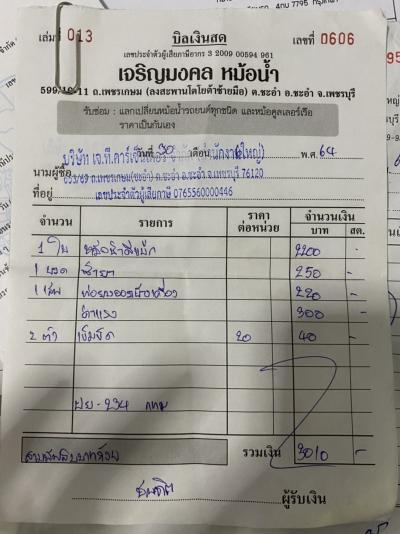 เล่มที่ 013
บิลเงินสด
เลขที่ 0606
เลขประจำตัวผู้เสียภาษีอากร 3 2009 00594 961
เจริญมงคล หม้อน้ำ
599/10-11 ถ.เพชรเกษม (ลงสะพานโตโยต้าซ้ายมือ) ต.ชะอำ อ.ชะอำ จ.เพชรบุรี
รับซ่อม : แลกเปลี่ยนหม้อน้ำรถยนต์ทุกชนิด และหม้อคูลเลอร์เรือ
ราคาเป็นกันเอง
วันที่ 30 เดือน พ.ศ. 64
นามผู้ซื้อ บริษัท เจ.ที.คาร์เซ็นเตอร์ (สำนักงานใหญ่)
ที่อยู่ ถ.เพชรเกษม(ชะอำ) ต.ชะอำ อ.ชะอำ จ.เพชรบุรี 76120
เลขประจำตัวผู้เสียภาษี 0765560000446
จำนวน รายการ ราคาต่อหน่วย จำนวนเงิน
บาท สต.
1 ใบ 2200 -
1 ขวด น้ำยา 250 -
1 เส้น 220 -
ค่าแรง 300 -
2 ตัว เข็มขัด 20 40 -
กทม
สามพันสิบบาทถ้วน รวมเงิน 3010 -
ผู้รับเงิน